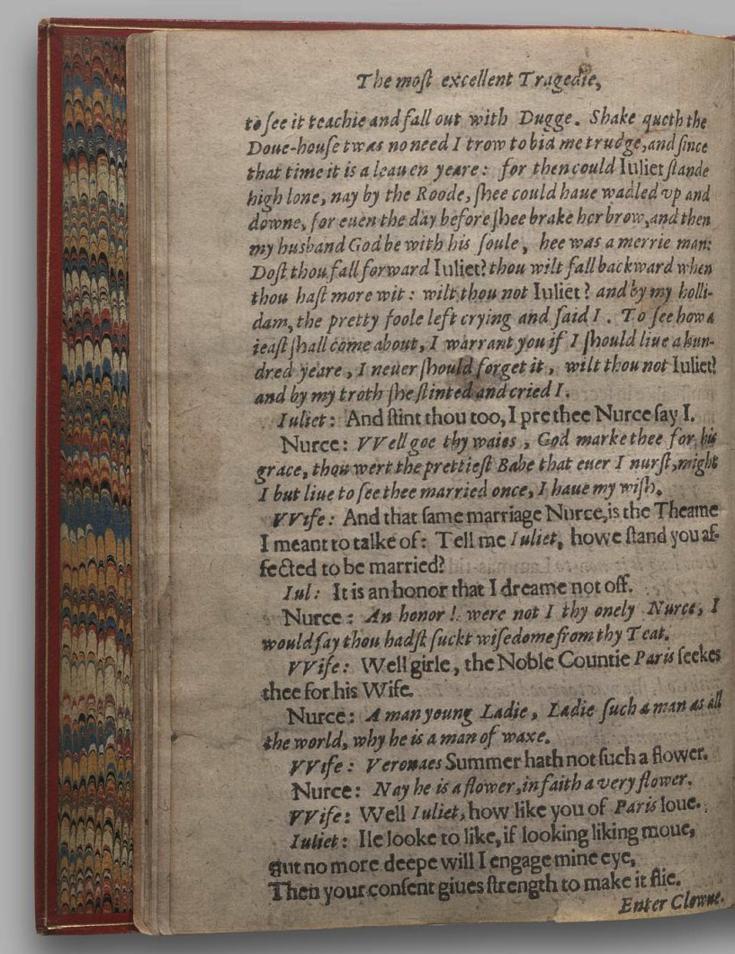 The most excellent Tragedie,
to ſee it teachie and fall out with Dugge. Shake quoth the
Doue-houſe twas no need I trow to bid me trudge, and ſince
that time it is a leauen yeare: for then could Iuliet ſtande
high lone, nay by the Roode, ſhee could haue wadled vp and
downe, for euen the day before ſhee brake her brow, and then
my husband God be with his ſoule, hee was a merrie man:
Doſt thou fall forward Iuliet? thou wilt fall backward when
thou haſt more wit: wilt thou not Iuliet? and by my holli-
dam, the pretty foole left crying and ſaid I. To ſee how a
ieaſt ſhall come about, I warrant you if I ſhould liue a hun-
dred yeare, I neuer ſhould forget it, wilt thou not Iuliet?
and by my troth ſhe ſtinted and cried I.
Iuliet: And ſtint thou too, I prethee Nurce ſay I.
Nurce: VVell goe thy waies, God marke thee for his
grace, thou wert the prettieſt Babe that euer I nurſt, might
I but liue to ſee thee married once, I haue my wiſh.
VVife: And that ſame marriage Nurce, is the Theame
I meant to talke of: Tell me Iuliet, howe ſtand you af-
fected to be married?
Iul: It is an honor that I dreame not off.
Nurce: An honor! were not I thy onely Nurce, I
would ſay thou hadſt ſuckt wiſedome from thy Teat.
VVife: Well girle, the Noble Countie Paris ſeekes
thee for his Wife.
Nurce: A man young Ladie, Ladie ſuch a man as all
the world, why he is a man of waxe.
VVife: Veronaes Summer hath not ſuch a flower.
Nurce: Nay he is a flower, in faith a very flower.
VVife: Well Iuliet, how like you of Paris loue.
Iuliet: Ile looke to like, if looking liking moue,
But no more deepe will I engage mine eye,
Then your conſent giues ſtrength to make it flie.
Enter Clowne.